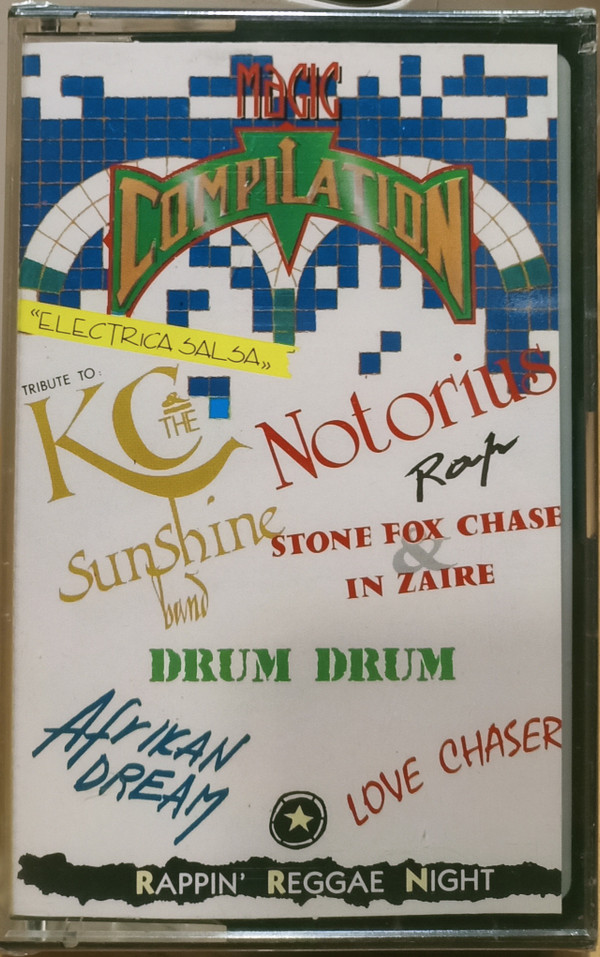 MAGIC
COMPILATION
"ELECTRICA SALSA„
TRIBUTE TO:
KC & THE
Sunshine
band
Notorius
Rap
STONE FOX CHASE
&
IN ZAIRE
DRUM DRUM
AFRIKAN
DREAM
LOVE CHASER
RAPPIN' REGGAE NIGHT